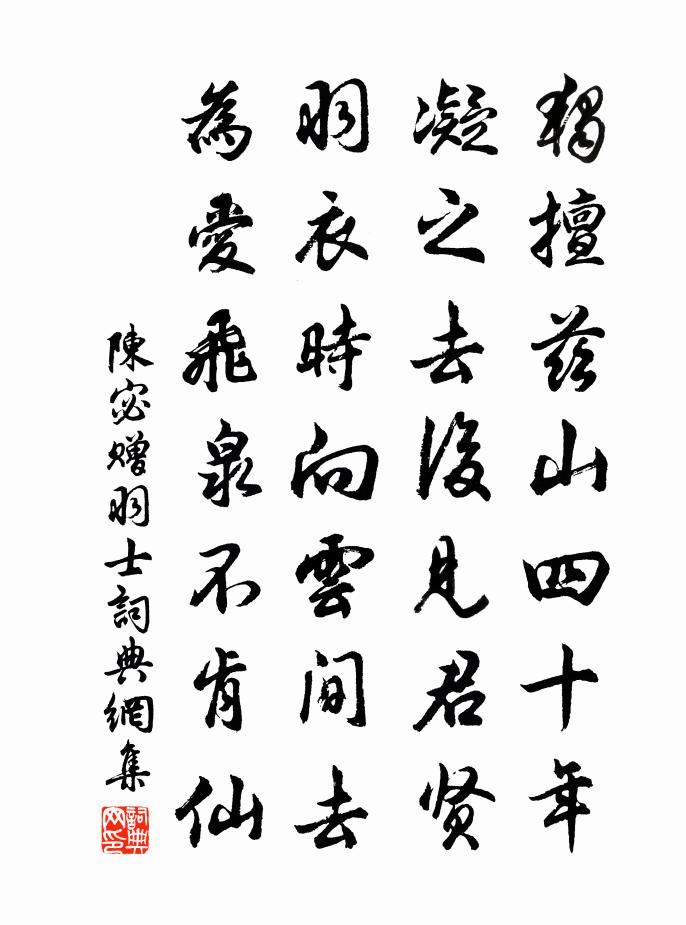 獨擅茲山四十年
凝之去後見君賢
羽衣時向雲間去
為愛飛泉不肯仙
陳宓贈羽士詞典網集
詞典网印